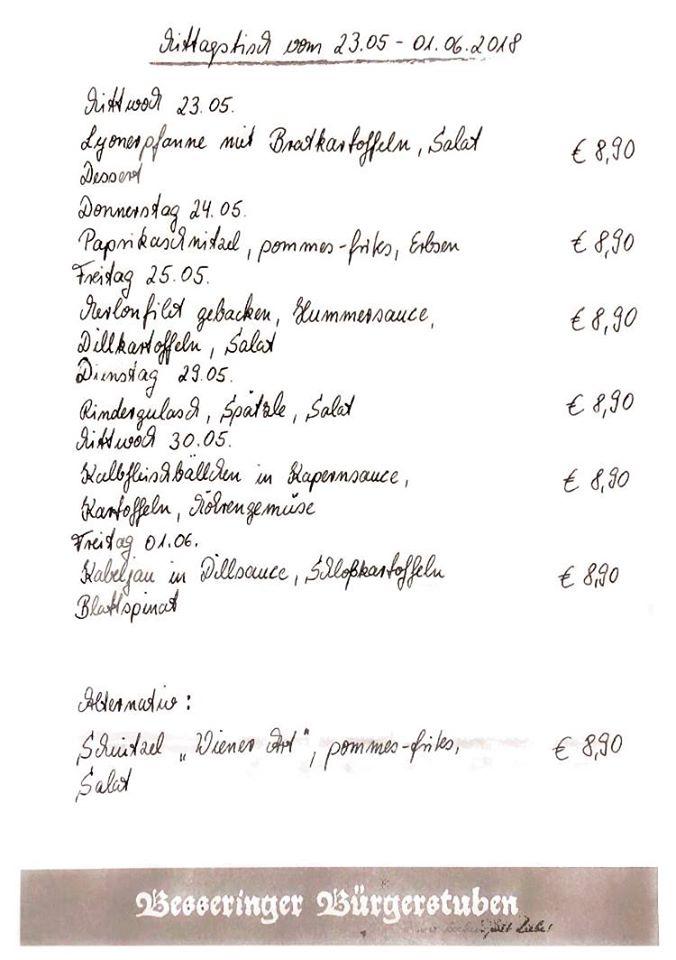 Mittagstisch vom 23.05 - 01.06.2018
Mittwoch 23.05.
Lyonerpfanne mit Bratkartoffeln, Salat € 8,90
Dessert
Donnerstag 24.05.
Paprikaschnitzel, pommes-frites, Erbsen € 8,90
Freitag 25.05.
Merlanfilet gebacken, Hummersauce, € 8,90
Dillkartoffeln, Salat
Dienstag 29.05.
Rindergulasch, Spätzle, Salat € 8,90
Mittwoch 30.05.
Kalbfleischbällchen in Kapernsauce, € 8,90
Kartoffeln, Möhrengemüse
Freitag 01.06.
Kabeljau in Dillsauce, Schloßkartoffeln € 8,90
Blattspinat
Alternativ:
Schnitzel „Wiener Art", pommes-frites, € 8,90
Salat
Besseringer Bürgerstuben
mit Liebe!